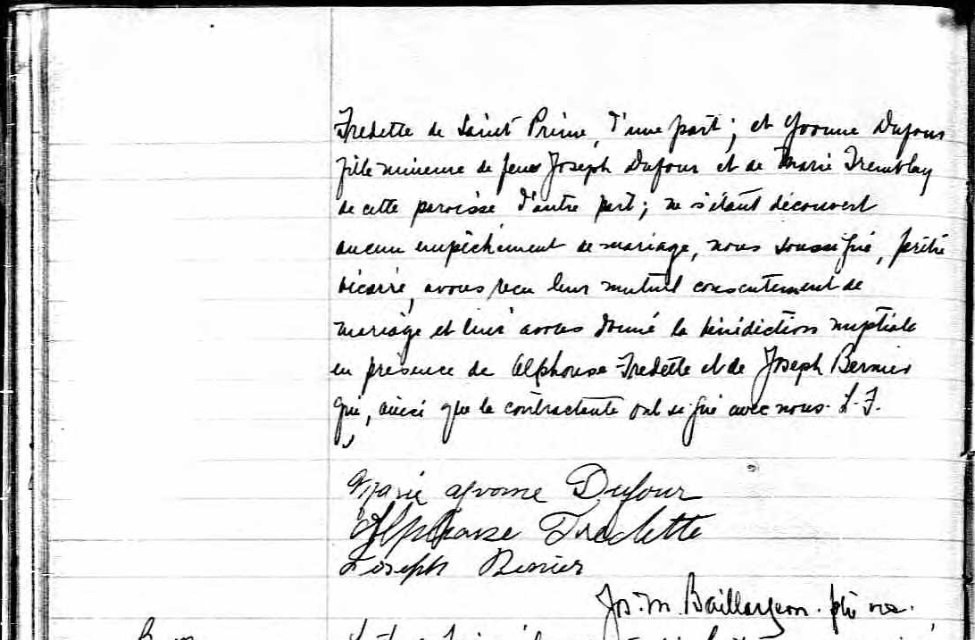 Fredette de Saint Prime, d'une part; et Yvonne Dufour
fille mineure de feu Joseph Dufour et de Marie Tremblay
de cette paroisse d'autre part; ne s'étant découvert
aucun empêchement de mariage, nous soussigné, prêtre
vicaire, avons reçu leur mutuel consentement de
mariage et leur avons donné la bénédiction nuptiale
en présence de Alphonse Fredette et de Joseph Bernier
qui, ainsi que la contractante ont signé avec nous. L. F.
Marie Yvonne Dufour
Alphonse Fredette
Joseph Bernier
Jos. M. Baillargeon. ptre vic.